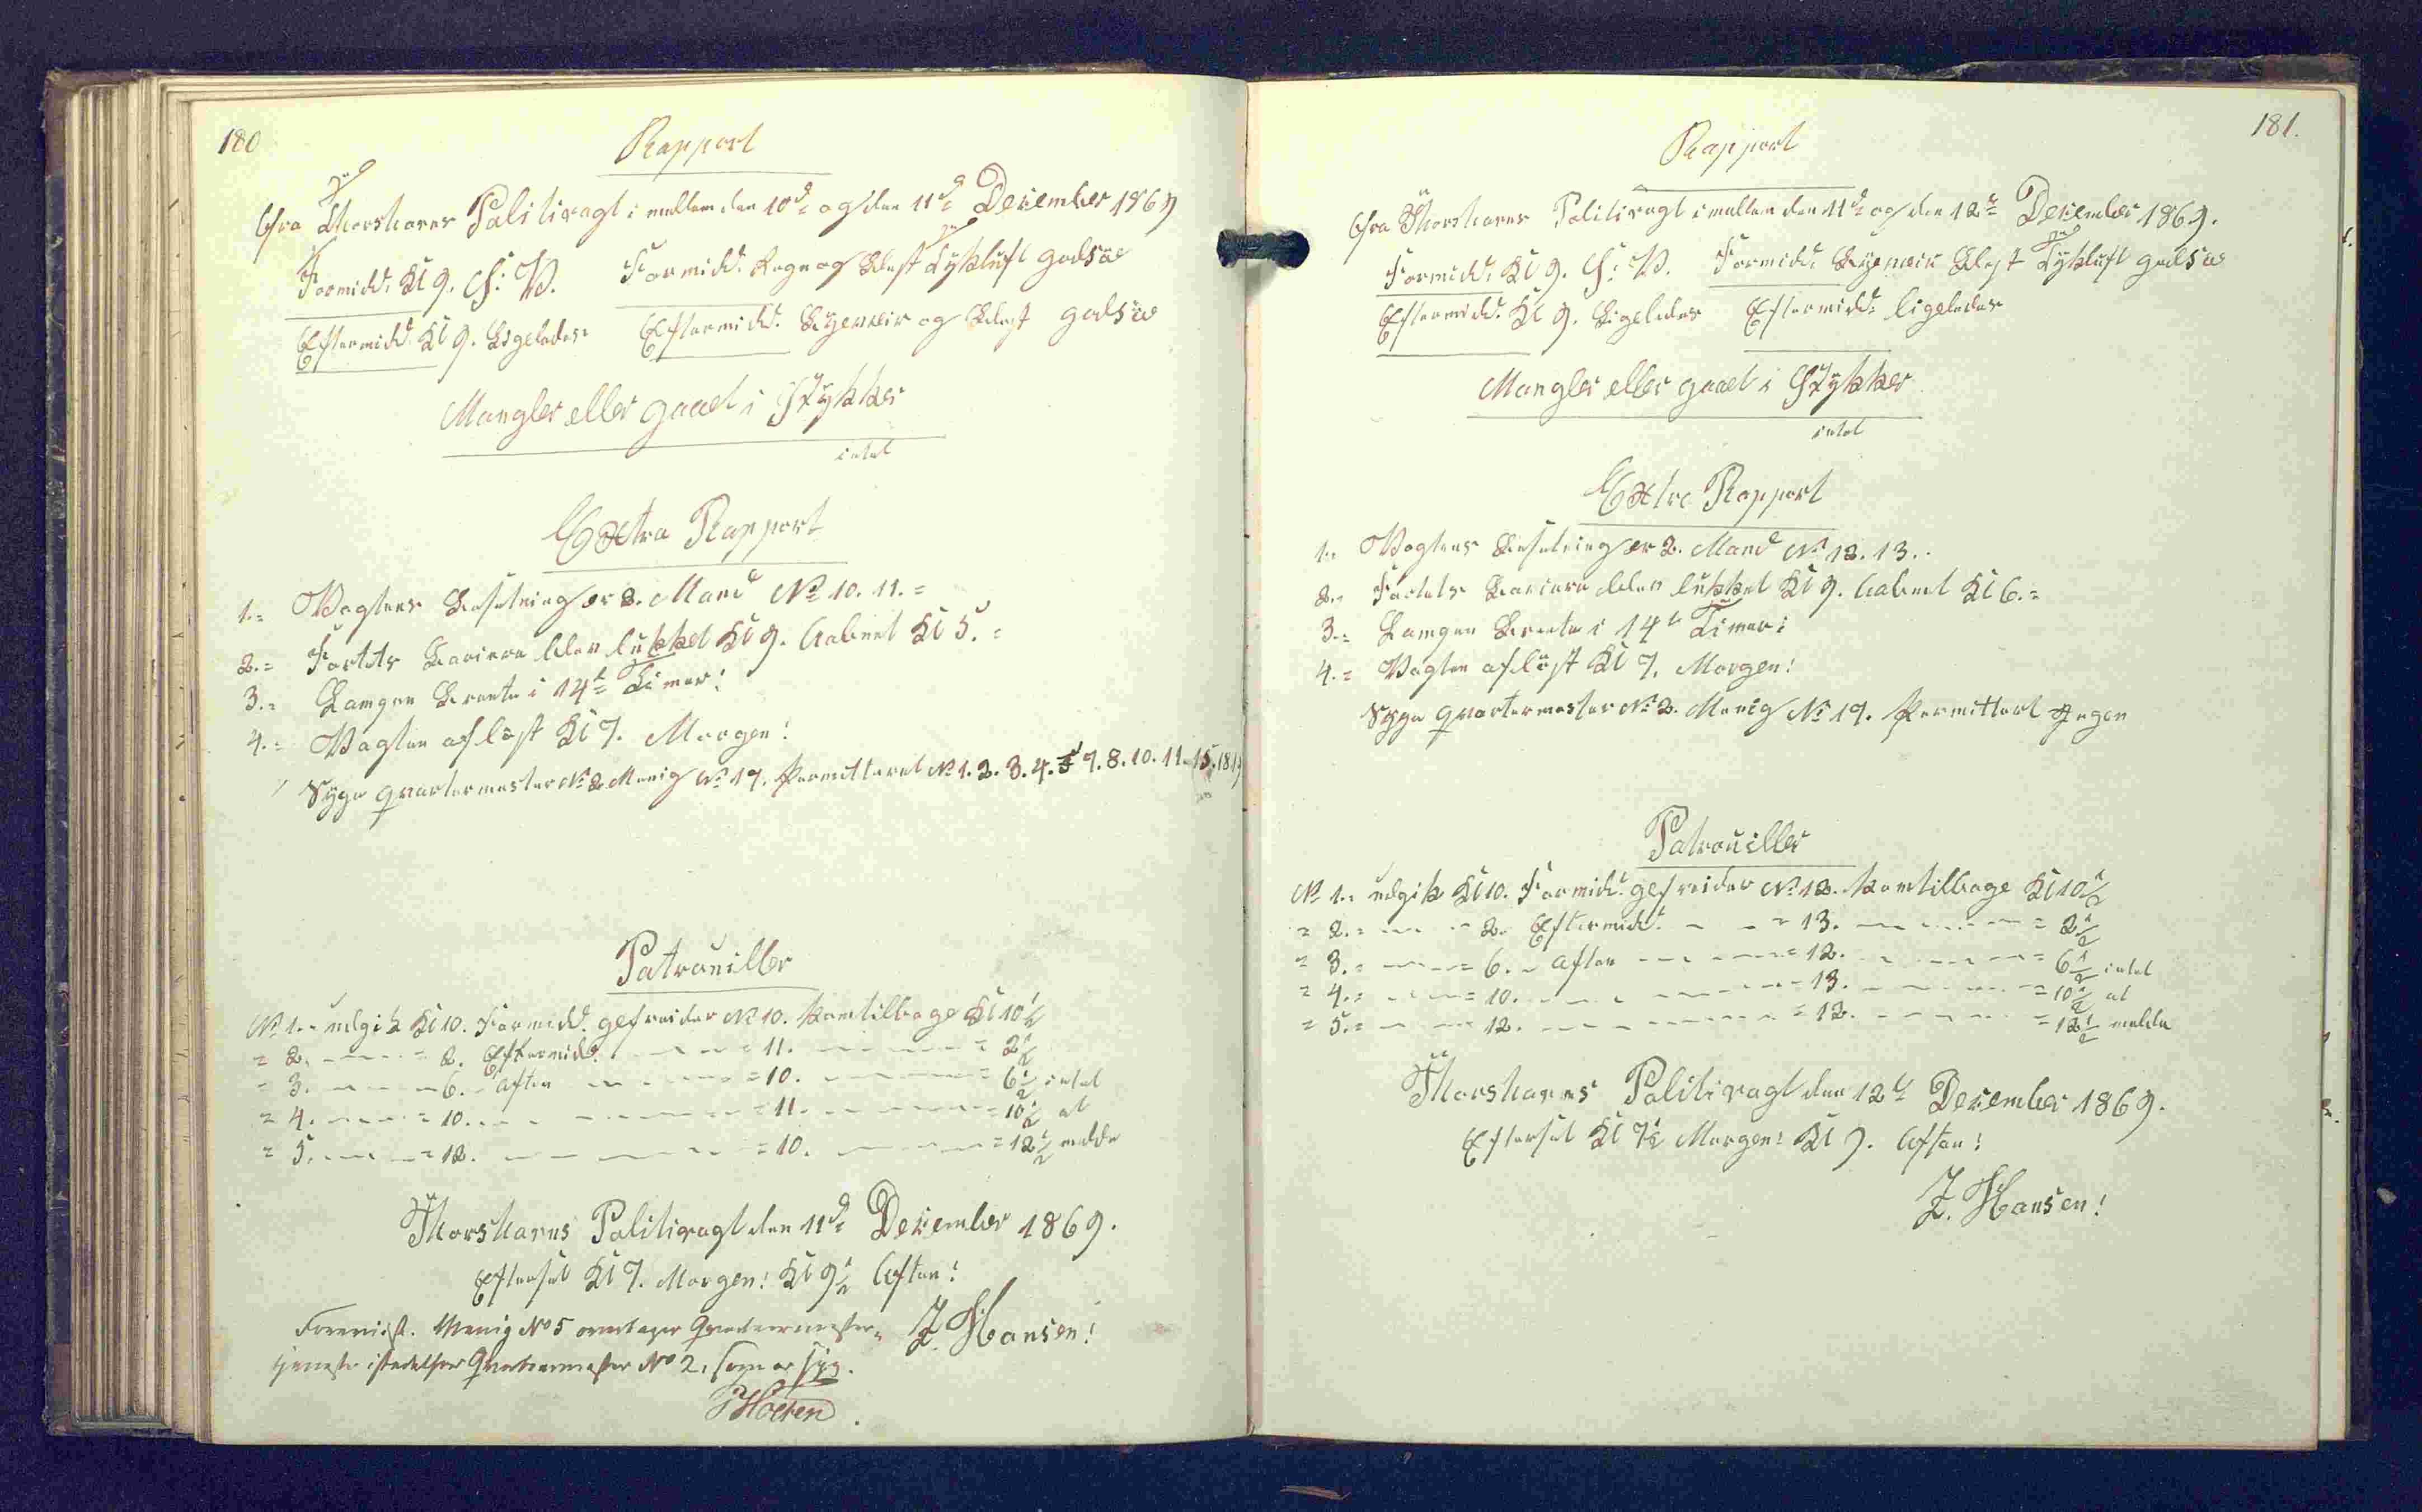 180
Rapport
fra Thorshavns Politivagt imellem den 10de og den 11de December 1869
Formidd. Kl 9. S: V. Formidd. Regn og Blæst Tykluft godsøe
Eftermidd. Kl 9. Ligeledes Eftermidd. Bygeveir og Blæst godsøe
Mangler eller gaaet i Stykker
intet
Extra Rapport
1. Vagtens Besætning er 2. Mand No 10. 11.
2. Fortets Bariere blev lukket Kl 9. Aabnet Kl 5.
3. Lampen Brente i 14t Timer!
4. Vagten afløst Kl 7. Morgen!
Syge Qvartermester No 2 Menig No 17. Permitteret No 1. 2. 3. 4. 5 7. 8. 10. 11. 15. 18.
Patrouiller
No 1. udgik Kl 10. Formidd. gefreider No 10. Kom tilbage Kl 10 1/2
= 2. = 2. Eftermidd. = 11. = 2 1/2
= 3. = 6. Aften = 10. = 6 1/2 intet
= 4. = 10. = 11. = 10 1/2 at
= 5. = 12. = 10. = 12 1/2 melde
Thorshavns Politivagt den 11de December 1869.
Efterset Kl 7. Morgen! Kl 9 1/2 Aften!
J. Hansen!
Foreviist. Menig No 5 overtager Qvarteermester-
tjeneste istedetfor Qvarteermester No 2, som er syg.
181.
Rapport
fra Thorshavns Politivagt imellem den 11te og den 12te December 1869.
Formidd. Kl 9. S: V. Formidd. Bygeveir Blæst Tykluft godsøe
Eftermidd. Kl 9. Ligeledes Eftermidd. ligeledes
Mangler eller gaaet i Stykker
intet
Extra Rapport
1. Vagtens Besætning er 2. Mand No 12. 13.
2. Fortets Bariere blev lukket Kl 9. Aabnet Kl 6.
3. Lampen Brente i 14t Timer!
4. Vagten afløst Kl 7. Morgen!
Syge Qvartermester No 2. Menig No 17. Permitteret Ingen
Patrouiller
No 1. udgik Kl 10. Formidd. gefreider No 12. Kom tilbage Kl 10 1/2
= 2. = 2. Eftermidd. = 13. = 2 1/2
= 3. = 6. Aften = 12. = 6 1/2 intet
= 4. = 10. = 13. = 10 1/2 at
= 5. = 12. = 12. = 12 1/2 melde
Thorshavns Politivagt den 12te December 1869.
Efterset Kl 7 1/2 Morgen! Kl 9. Aften!
J. Hansen!